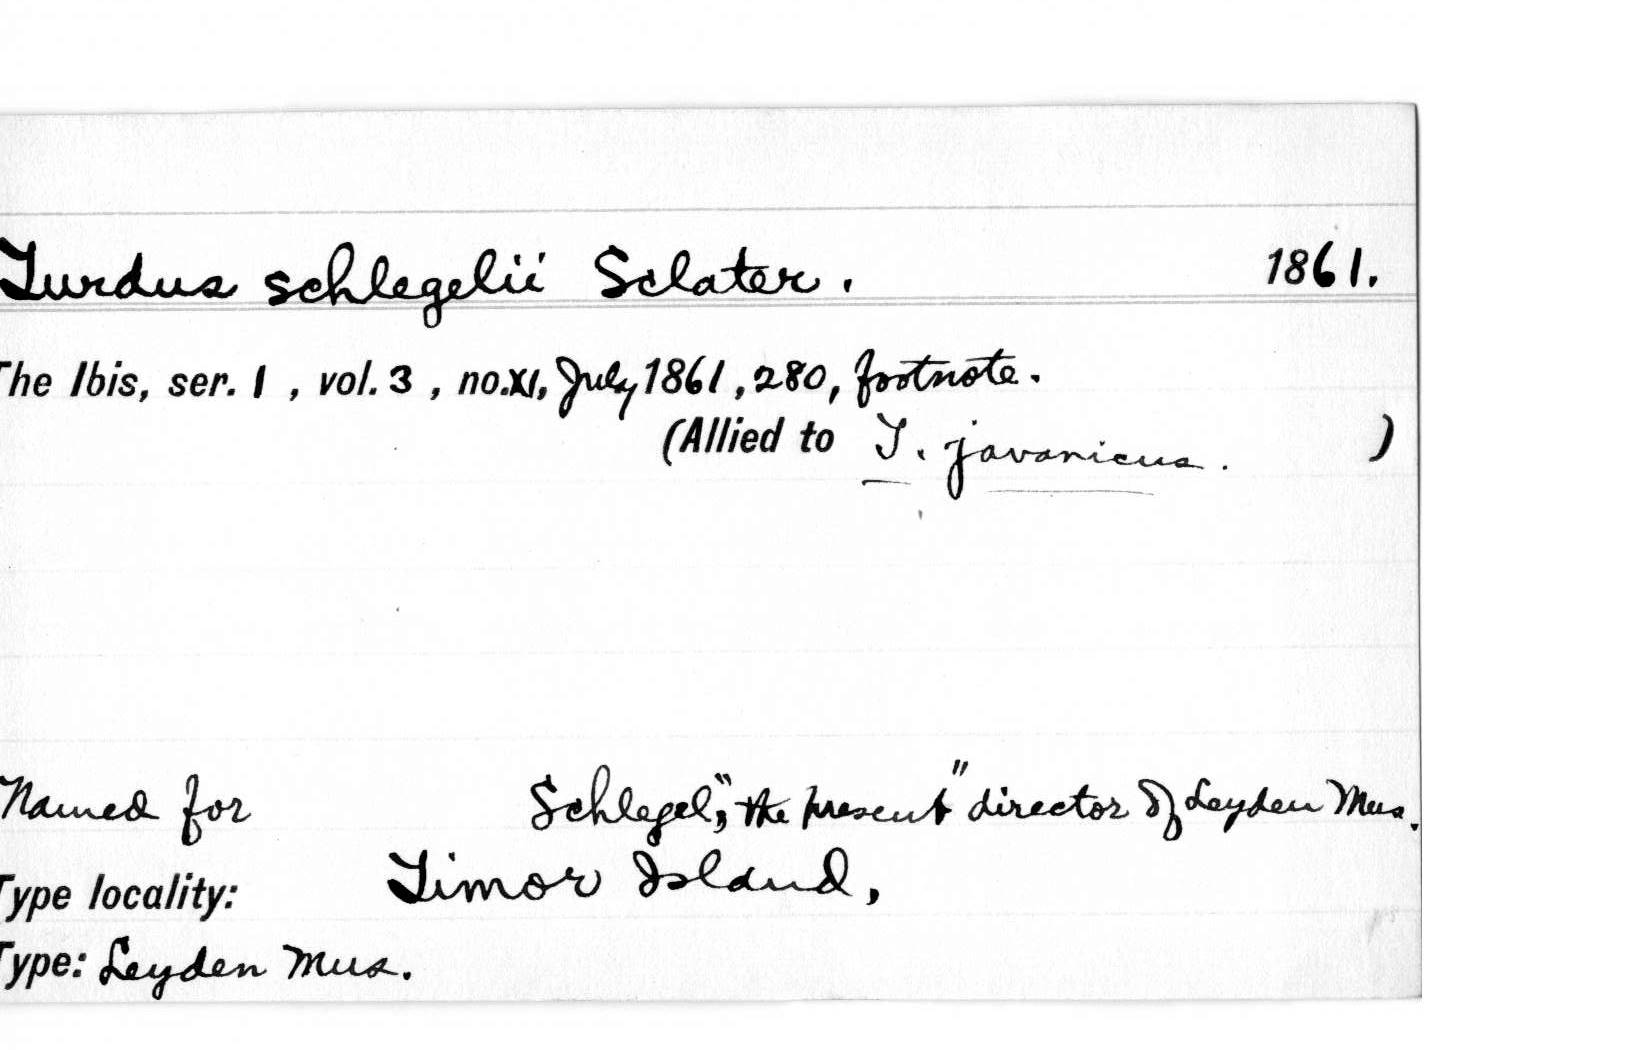 Turdus schlegelii Sclater. 1861.
The Ibis, ser. 1, vol. 3, no. XI, July 1861, 280, footnote.
(Allied to T. javanicus. )
Named for Schlegel, "the present" director of Leyden Mus.
Type locality: Timor Island,
Type: Leyden Mus.